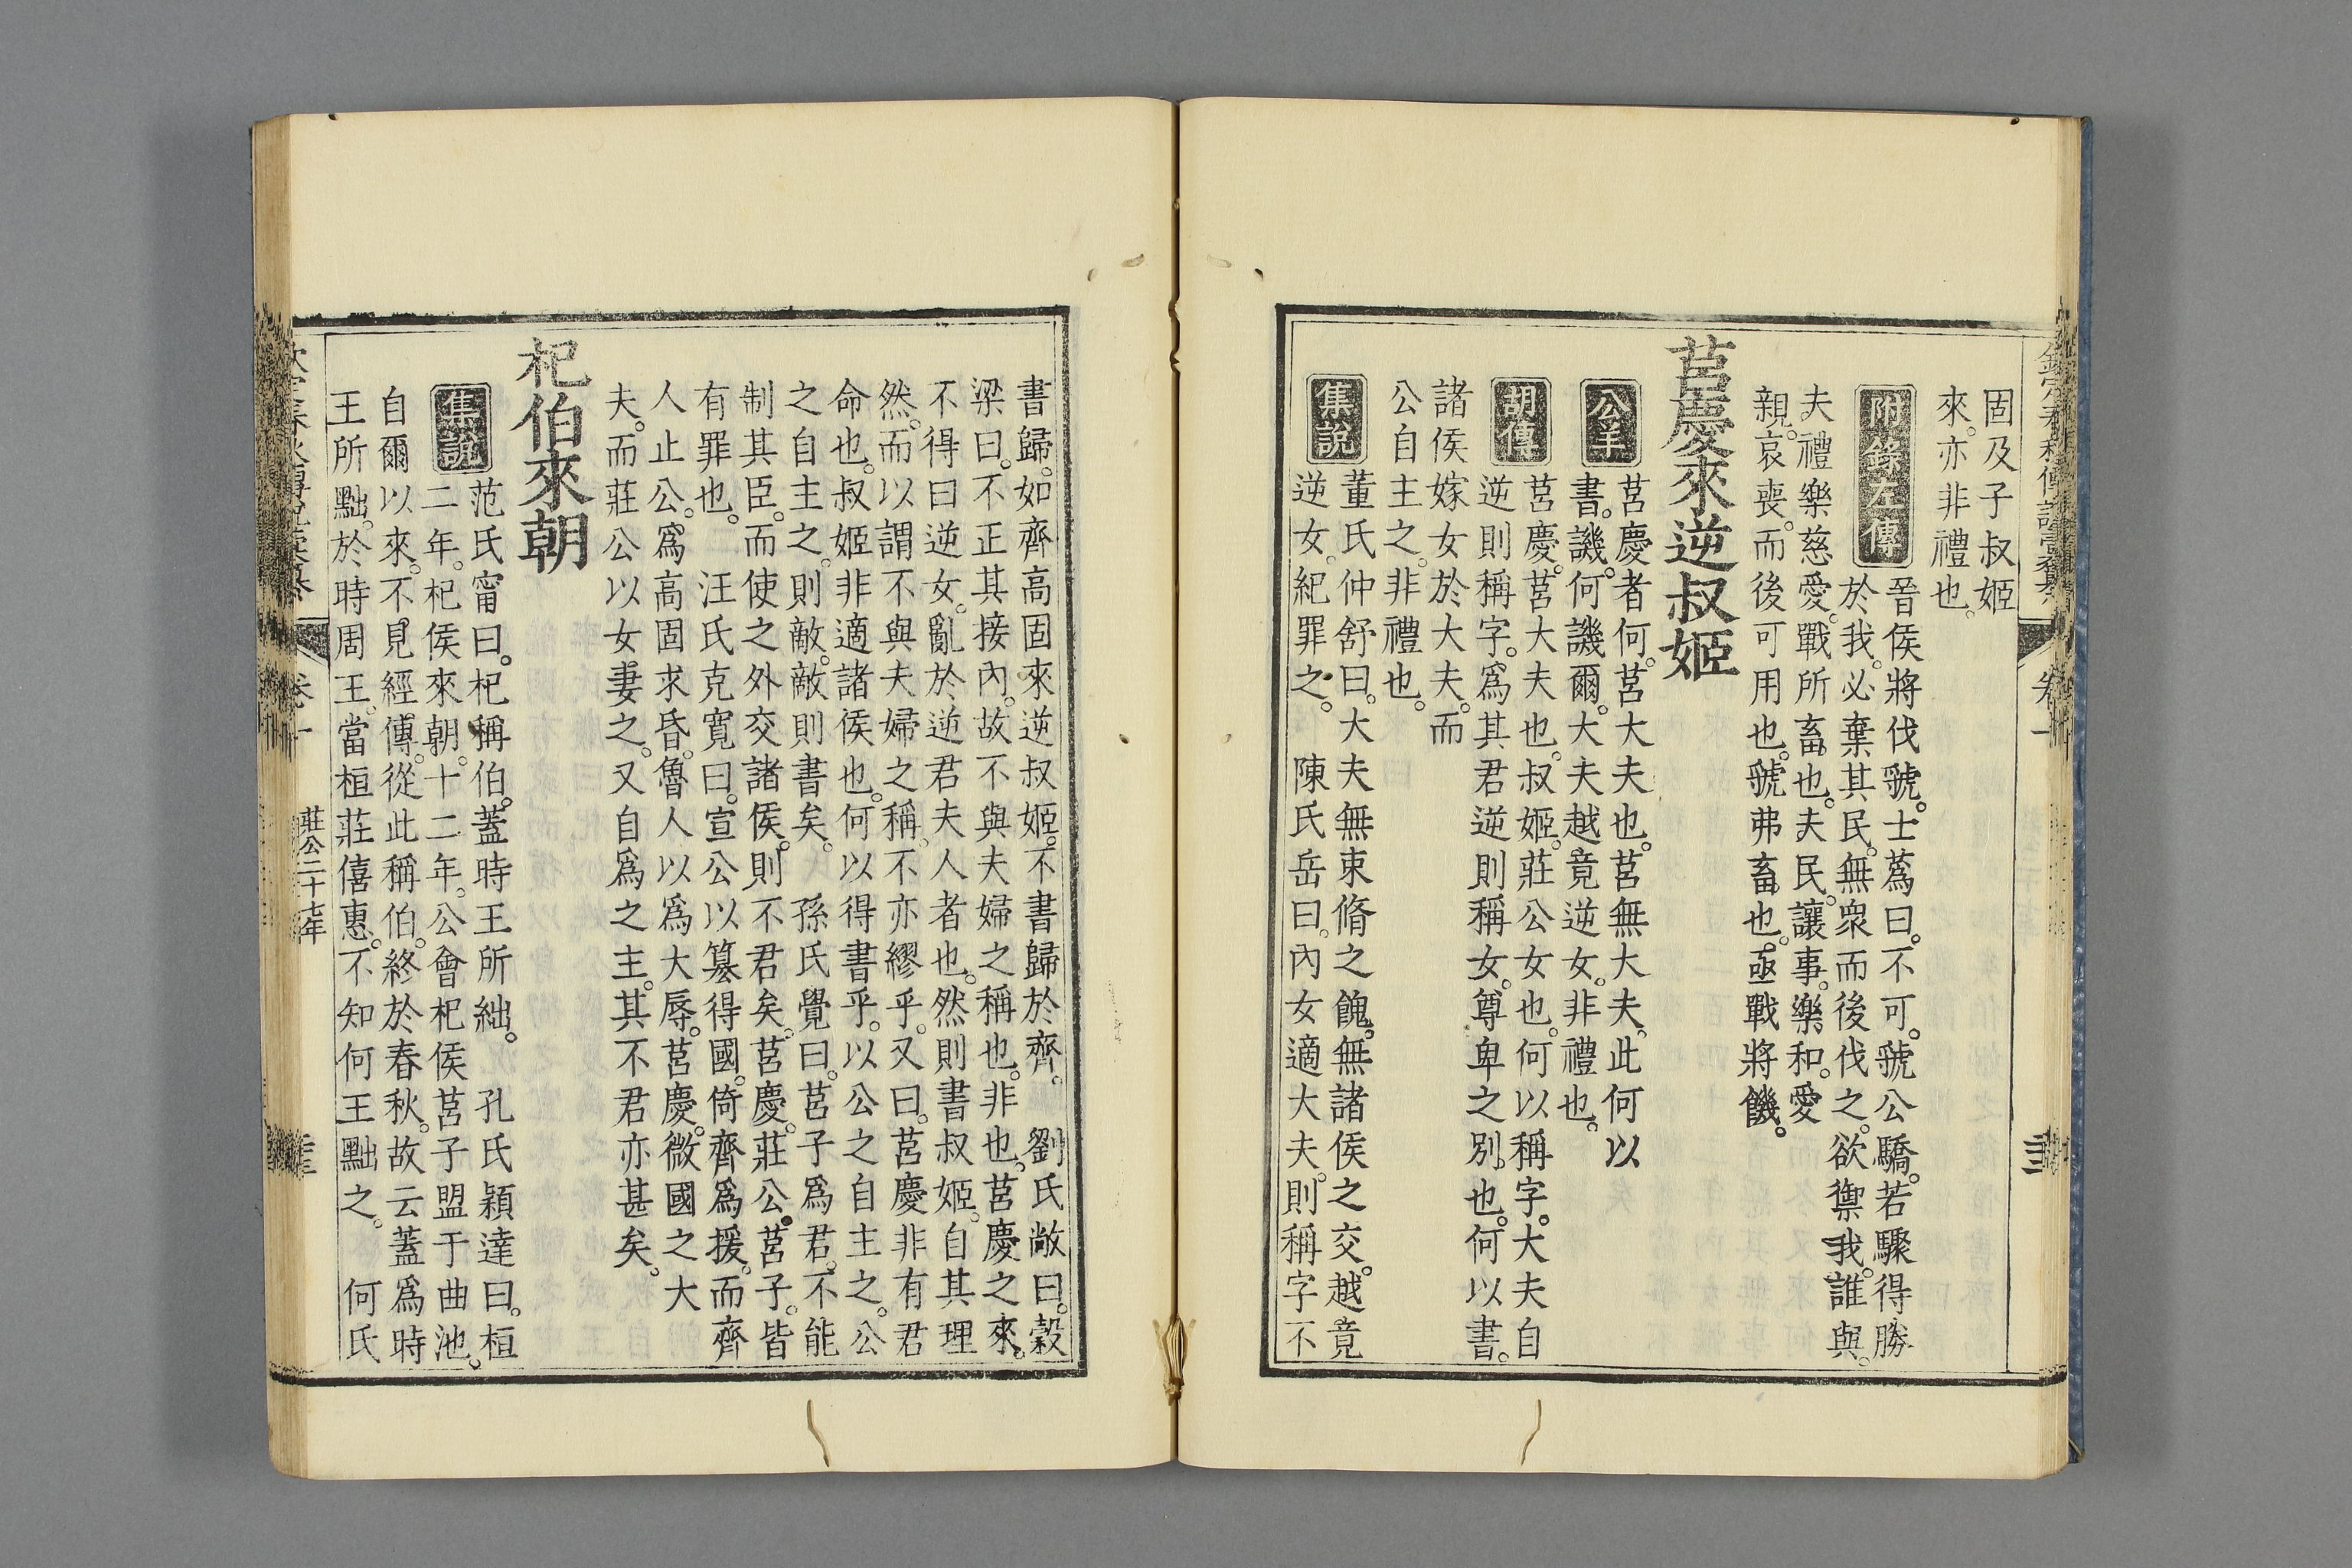 固及子叔姬
來。亦非禮也。
附錄左傳
晉侯將伐虢。士蔿曰。不可。虢公驕。若驟得勝
於我。必棄其民。無衆而後伐之。欲禦我。誰與。
夫禮樂慈愛。戰所畜也。夫民。讓事。樂和。愛
親。哀喪。而後可用也。虢弗畜也。亟戰將饑。
莒慶來逆叔姬
公羊
莒慶者何。莒大夫也。莒無大夫。此何以
書。譏。何譏爾。大夫越竟逆女。非禮也。
胡傳
莒慶。莒大夫也。叔姬。莊公女也。何以稱字。大夫自
逆則稱字。爲其君逆則稱女。尊卑之別也。何以書。
諸侯嫁女於大夫。而
公自主之。非禮也。
集說
董氏仲舒曰。大夫無束脩之餽。無諸侯之交。越竟
逆女。紀罪之。 陳氏岳曰。內女適大夫。則稱字不
書歸。如齊高固來逆叔姬。不書歸於齊。 劉氏敞曰。穀
梁曰。不正其接內。故不與夫婦之稱也。非也。莒慶之來。
不得曰逆女。亂於逆君夫人者也。然則書叔姬。自其理
然。而以謂不與夫婦之稱。不亦繆乎。又曰。莒慶非有君
命也。叔姬非適諸侯也。何以得書乎。以公之自主之。公
之自主之。則敵。敵則書矣。 孫氏覺曰。莒子爲君。不能
制其臣。而使之外交諸侯。則不君矣。莒慶。莊公。莒子。皆
有罪也。 汪氏克寬曰。宣公以簒得國。倚齊爲援。而齊
人止公。爲高固求昏。魯人以爲大辱。莒慶。微國之大
夫。而莊公以女妻之。又自爲之主。其不君亦甚矣。
杞伯來朝
集說
范氏甯曰。杞稱伯。蓋時王所絀。 孔氏穎達曰。桓
二年。杞侯來朝。十二年。公會杞侯莒子盟于曲池。
自爾以來。不見經傳。從此稱伯。終於春秋。故云蓋爲時
王所黜。於時周王。當桓莊僖惠。不知何王黜之。 何氏
卷十
莊公二十七年